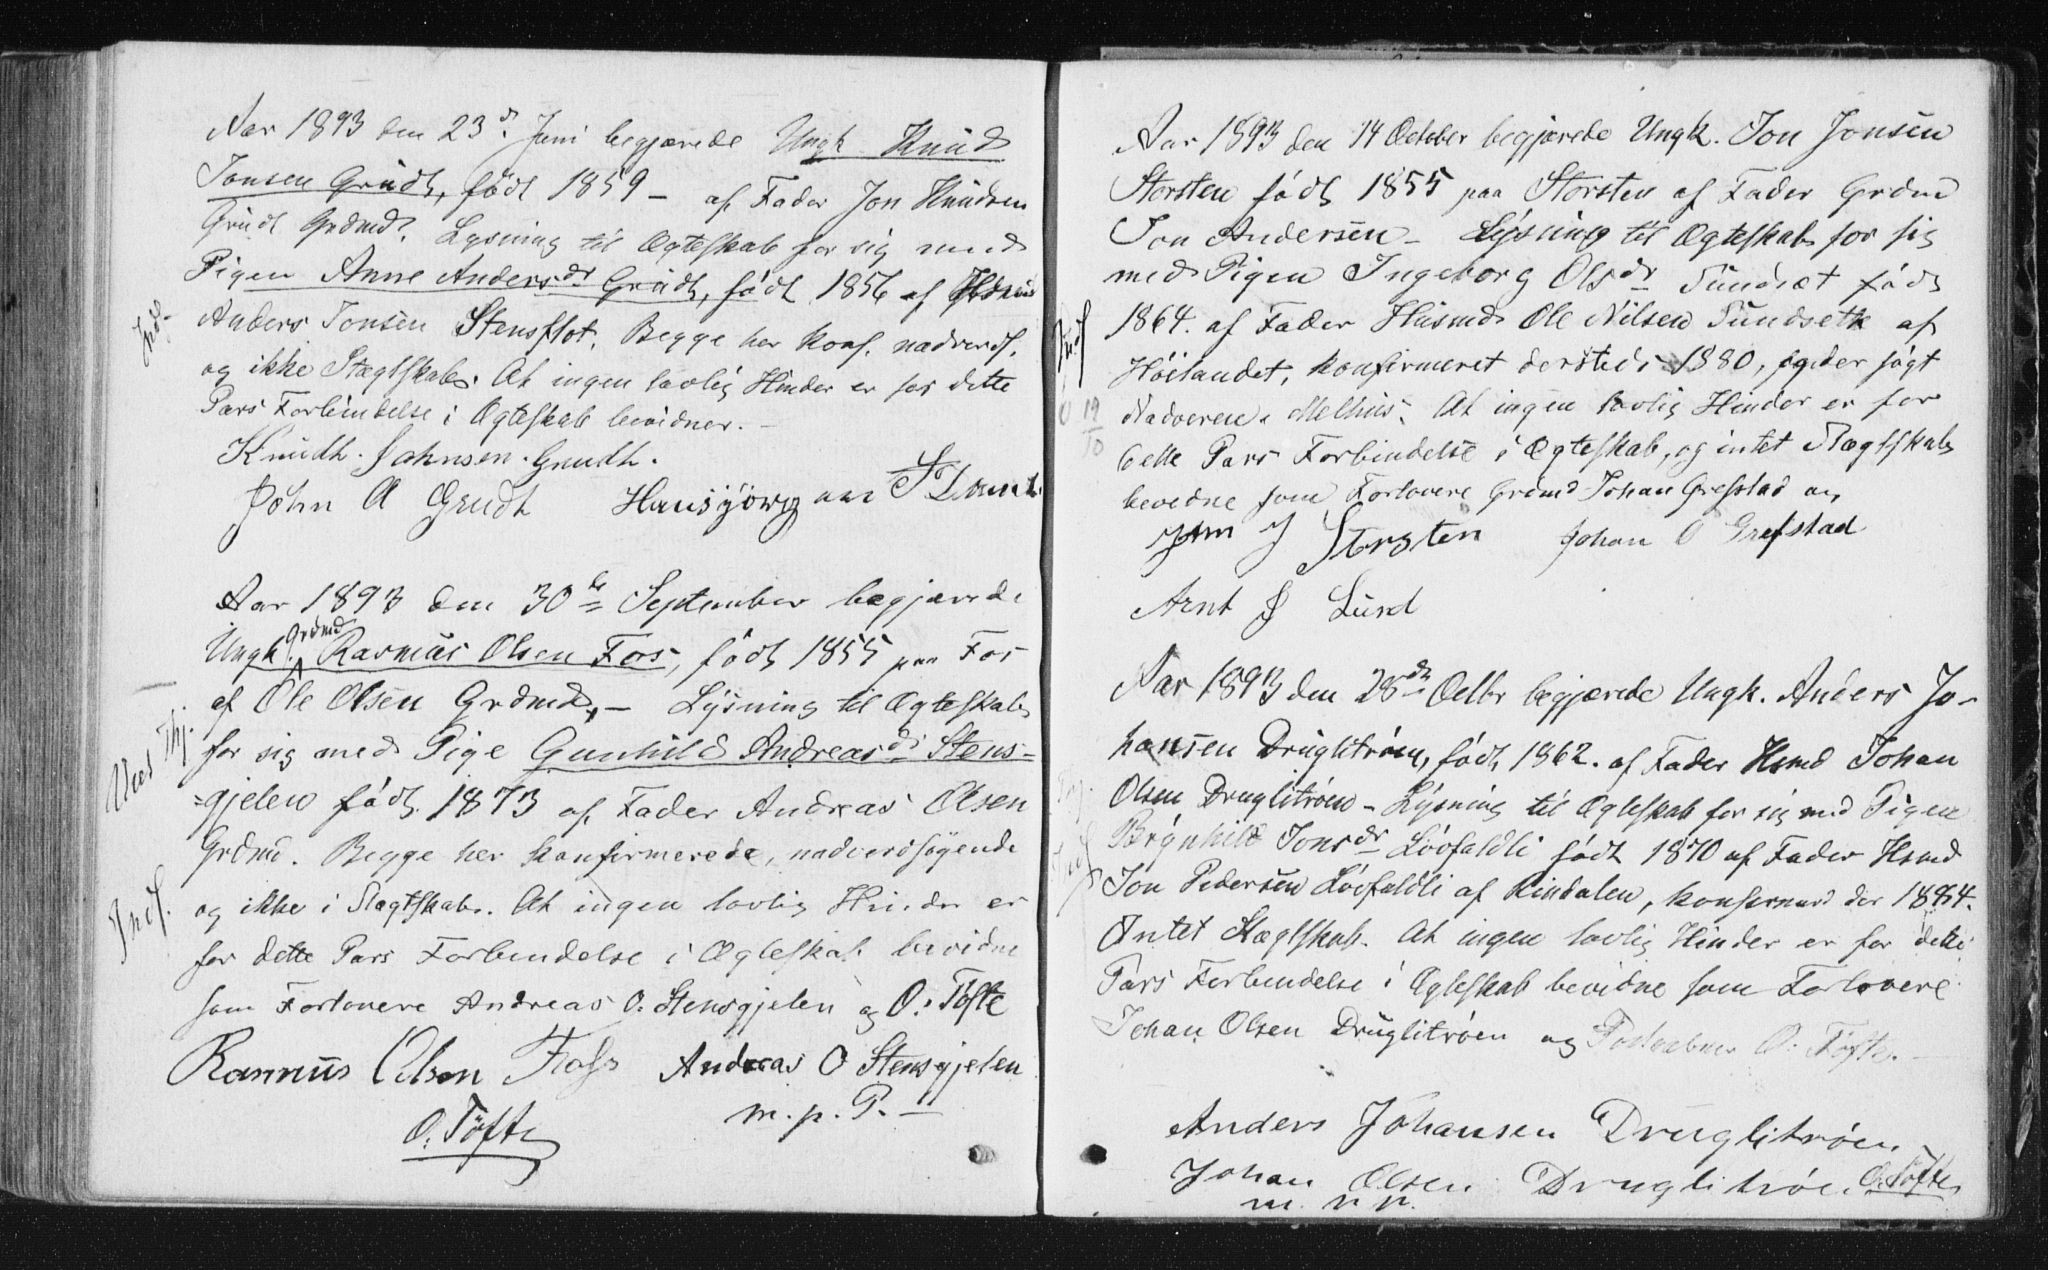 Aar 1893 den 23d. Juni begjærede Ungk Knud
Jonsen Grudt, født 1859 – af Fader Jon Knudsen
Grudt Grdmd. Lysning til Ægteskab for sig med
Pigen Anne Andersdr Grudt, født 1856 af
Indf.
Anders Jonsen Stensflot. Begge her konf. nadverds.
og ikke Slægtskab. At ingen lovlig Hinder er for dette
Pars Forbindelse i Ægteskab bevidner. –
Knudh. Johnsen. Grudh.
John A Grudt
Aar 1893 den 30te September begjærede
Ungk. Grdmd Rasmus Olsen Fos, født 1855 paa Fos
af Ole Olsen Grdmd, – Lysning til Ægteskab
for sig med Pige Gunhild Andreasdr Stens=
=gjelen født 1873 af Fader Andreas Olsen
Grdmd. Begge her konfirmerede, nadverdsøgende
Indf.
og ikke i Slægtskab. At ingen lovlig Hinder er
for dette Pars Forbindelse i Ægteskab bevidne
som Forlovere Andreas O. Stensgjelen og O. Tøfte
Rasmus Olsen Foss Andreas O Stensgjelen
m. p. P. –
O. Tøfte
Aar 1893 den 14 October begjærede Ungk. Jon Jonsen
Storsten født 1855 paa Storsten af Fader Grdmd
Jon Andersen – Lysning til Ægteskab for sig
med Pigen Ingeborg Olsdr Sundset født
1864. af Fader Husmd Ole Nilsen Sundseth af
Indf
Høilandet, konfirmeret dersteds 1880, søgt
19/10
Nadveren. Melhus. At ingen lovlig Hinder er for
dette Pars Forbindelse i Ægteskab, og intet Slægtskab
bevidne som Forlovere Grdmd Johan Grefstad og
John J Storsten Johan O Grefstad
Arnt J Lund
Aar 1893 den 28de Octbr begjærede Ungk. Anders Jo-
hansen Druglitrøen, født 1862. af Fader Hsmd Johan
Olsen Druglitrøen – Lysning til Ægteskab for sig med Pigen
Brynhild Jonsdr Løvfaldli født 1870 af Fader Hsmd
Jon Pedersen Løvfaldli af Rindalen, konfirmerd der 1884.
Intet Slægtskab. At ingen lovlig Hinder er for dette
Pars Forbindelse i Ægteskab bevidne som Forlovere
Johan Olsen Druglitrøen og O. Tøfte. –
Anders Johansen Druglitrøen
Johan Olsen Druglitrøen O. Tøfte
m. p. p.